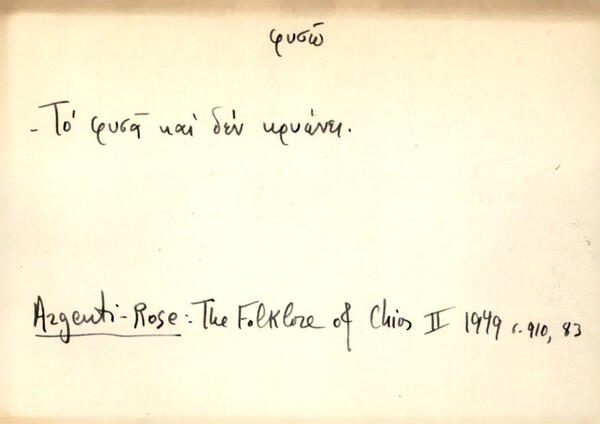 φυσῶ
- Τό φυσᾶ καί δέν κρυάνει.
Argenti-Rose: The Folklore of Chios II 1949 σ. 910, 83